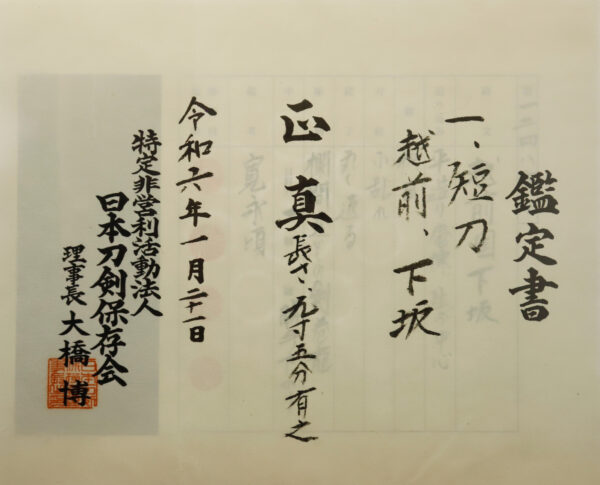 鑑定書
一、短刀
越前、下坂
正真 長さ、九寸五分有之
令和六年一月二十一日
特定非営利活動法人
日本刀剣保存会
理事長 大橋 博